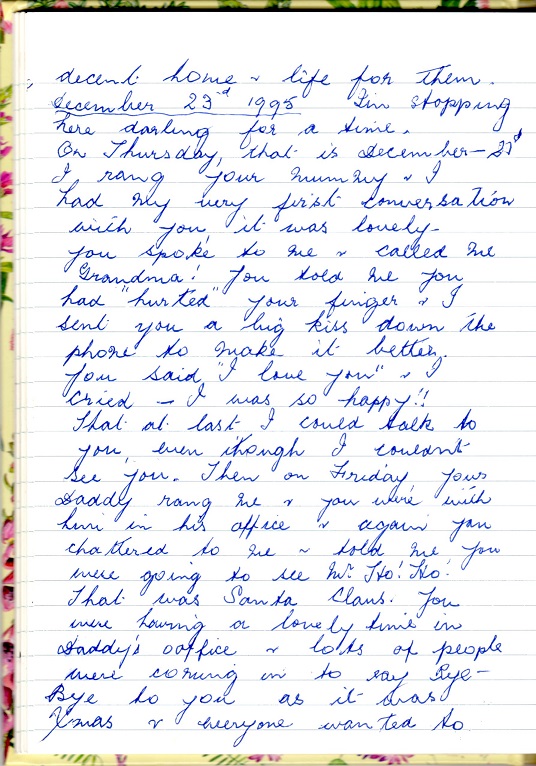 decent home & life for them.
December 23rd 1995 I'm stopping
here darling for a time.
On Thursday, that is December - 21st
I rang your mummy & I
had my very first conversation
with you, it was lovely -
you spoke to me & called me
Grandma! You told me you
had "hurted" your finger & I
sent you a big kiss down the
phone to make it better.
You said, "I love you" & I
cried - I was so happy!!
That at last I could talk to
you, even though I couldn't
see you. Then on Friday your
Daddy rang me & you were with
him in his office & again you
chattered to me & told me you
were going to see Mr. Ho! Ho!
That was Santa Claus. You
were having a lovely time in
Daddy's ooffice & lots of people
were coming in to say Bye-
Bye to you as it was
Xmas & everyone wanted to